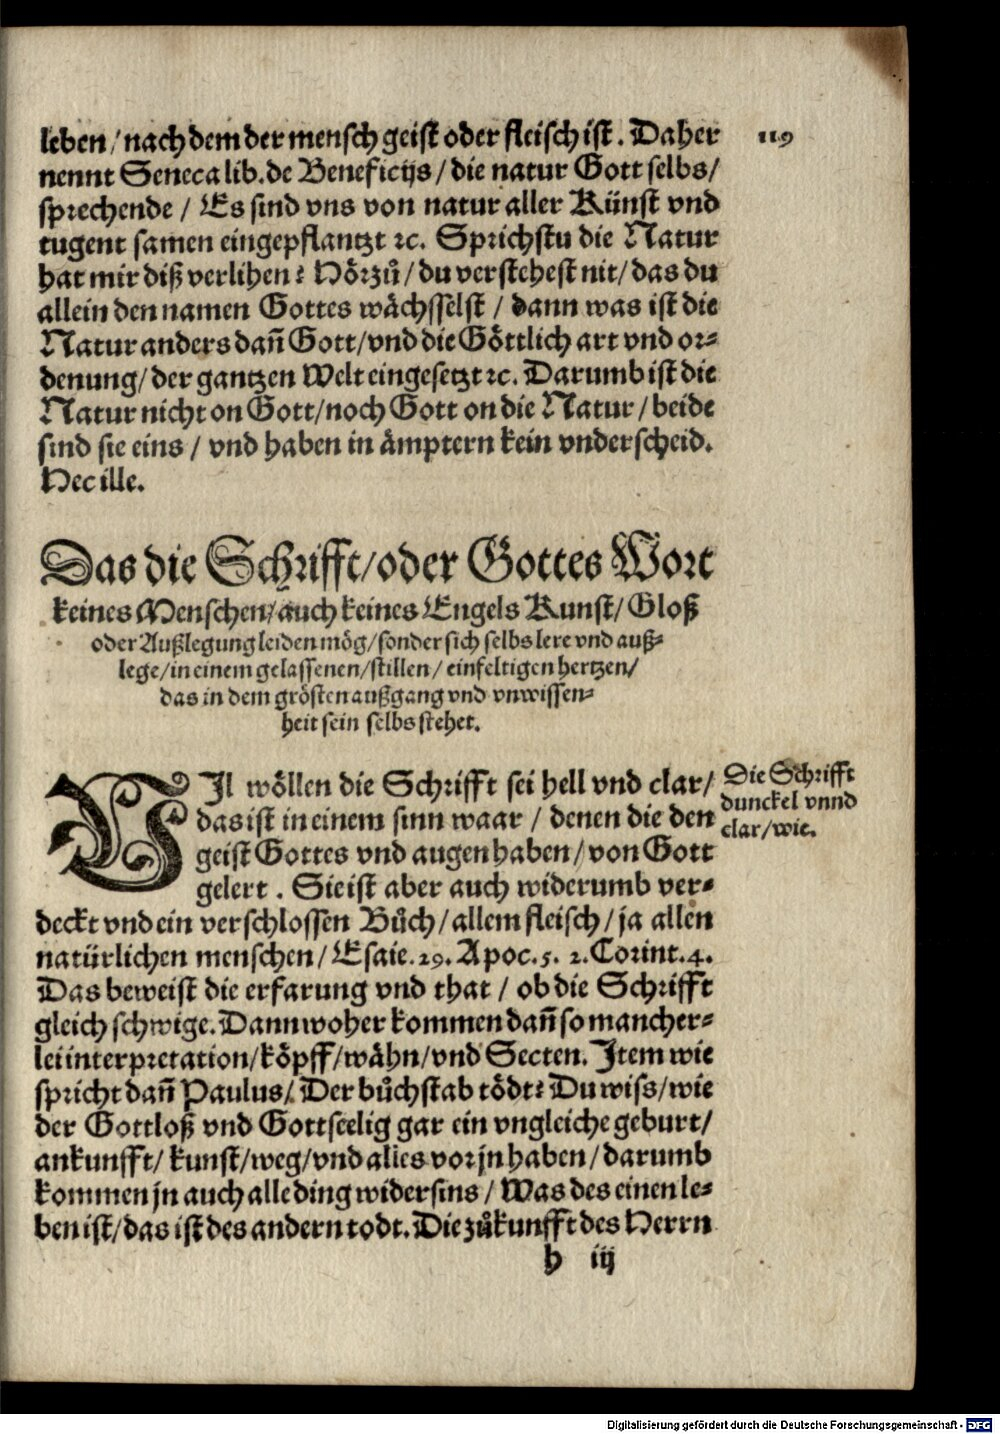 leben / nach dem der mensch geist oder fleisch ist . Daher
119
nennt Seneca lib. de Beneficijs / die natur Gott selbs /
sprechende / Es sind vns von natur aller Künst vnd
tugent samen eingepflantzt ꝛc. Sprichstu die Natur
hat mir diß verlihen? Hörzů / du verstehest nit / das du
allein den namen Gottes wåchsselst / dann was ist die
Natur anders dañ Gott / vnd die Göttlich art vnd or⸗
denung / der gantzen Welt eingesetzt ꝛc. Darumb ist die
Natur nicht on Gott / noch Gott on die Natur / beide
sind sie eins / vnd haben in åmptern kein vnderscheid.
Hec ille.
Das die Schrifft / oder Gottes Wort
keines Menschen / auch keines Engels Kunst / Gloß
oder Außlegung leiden mög / sonder sich selbs lere vnd auß⸗
lege / in einem gelassenen / stillen / einfeltigen hertzen /
das in dem grösten außgang vnd vnwissen⸗
heit sein selbs stehet.
VIl wöllen die Schrifft sei hell vnd clar /
das ist in einem sinn waar / denen die den
geist Gottes vnd augen haben / von Gott
gelert . Sie ist aber auch widerumb ver⸗
deckt vnd ein verschlossen Bůch / allem fleisch / ja allen
natürlichen menschen / Esaie. 29. Apoc. 5. 2. Corint. 4.
Das beweist die erfarung vnd that / ob die Schrifft
gleich schwige. Dann woher kommen dañ so mancher⸗
lei interpretation / köpff / wåhn / vnd Secten. Item wie
spricht dañ Paulus / Der bůchstab tödt? Du wiss / wie
der Gottloß vnd Gottseelig gar ein vngleiche geburt /
ankunfft / kunst / weg / vnd alles vor jn haben / darumb
kommen jn auch alle ding widersins / Was des einen le⸗
ben ist / das ist des andern todt. Die zůkunfft des Herrn
h iij
Die Schrifft
dunckel vnnd
clar / wie.
Digitalisierung gefördert durch die Deutsche Forschungsgemeinschaft - DFG